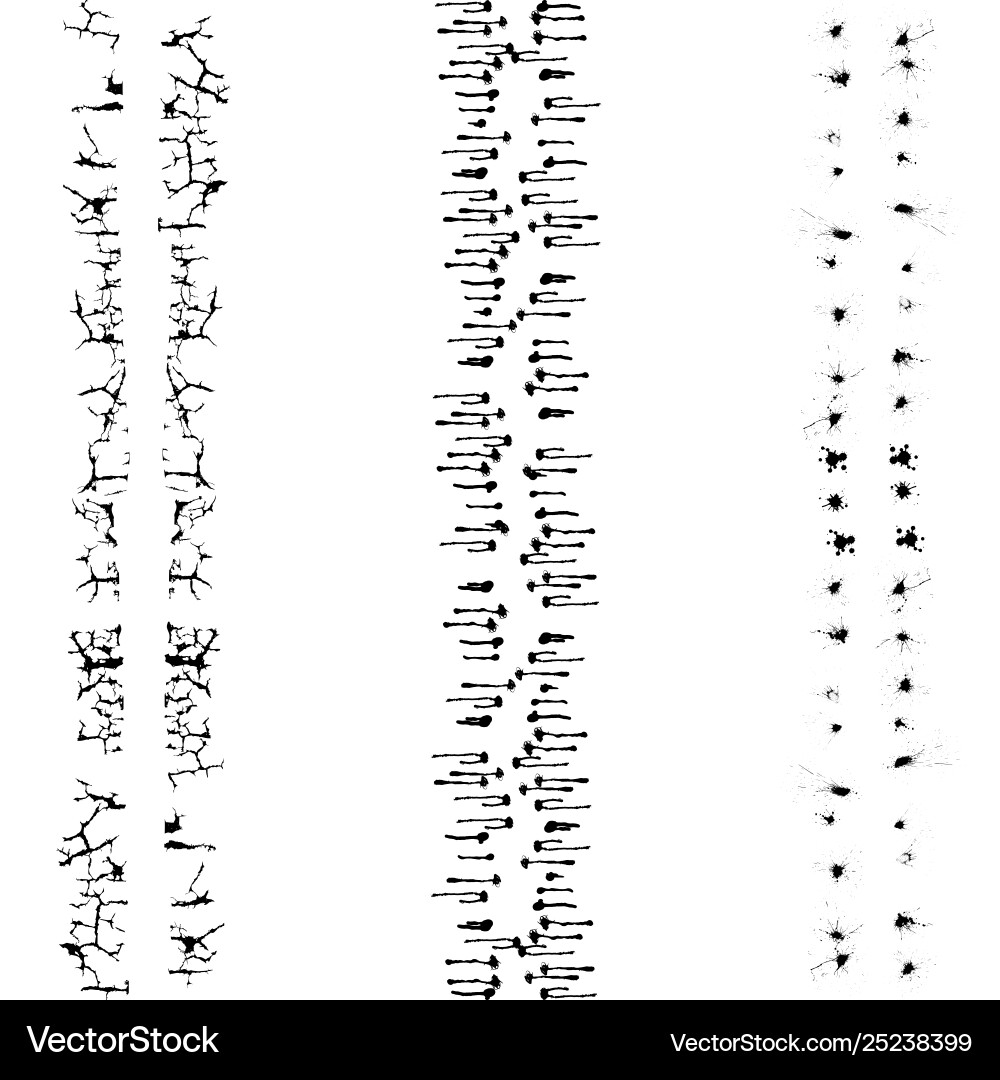 VectorStock
VectorStock.com/25238399